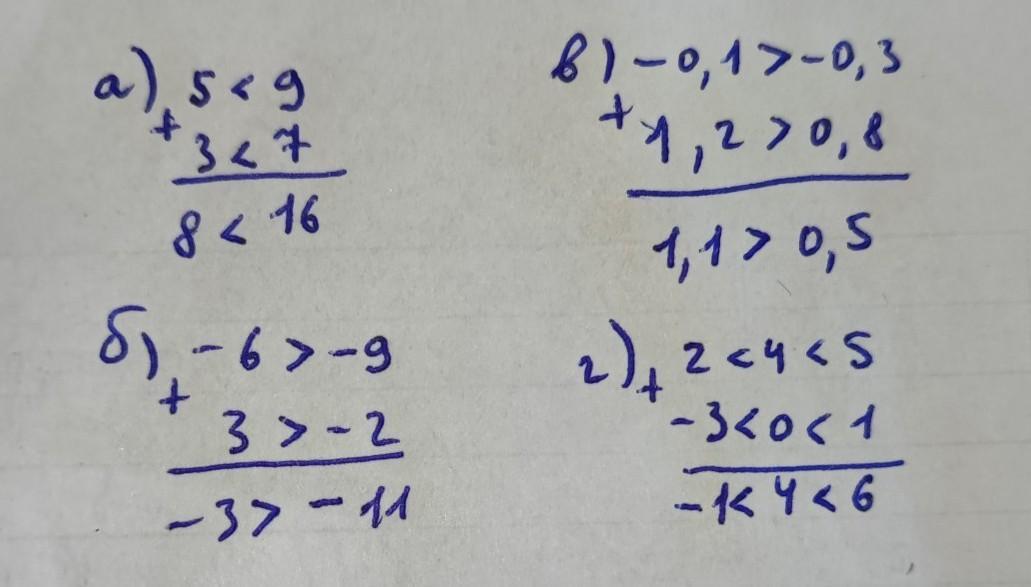 а) 5 < 9
+ 3 < 7
8 < 16
б) -6 > -9
+ 3 > -2
-3 > -11
в) -0,1 > -0,3
+ 1,2 > 0,8
1,1 > 0,5
г) + 2 < 4 < 5
-3 < 0 < 1
-1 < 4 < 6